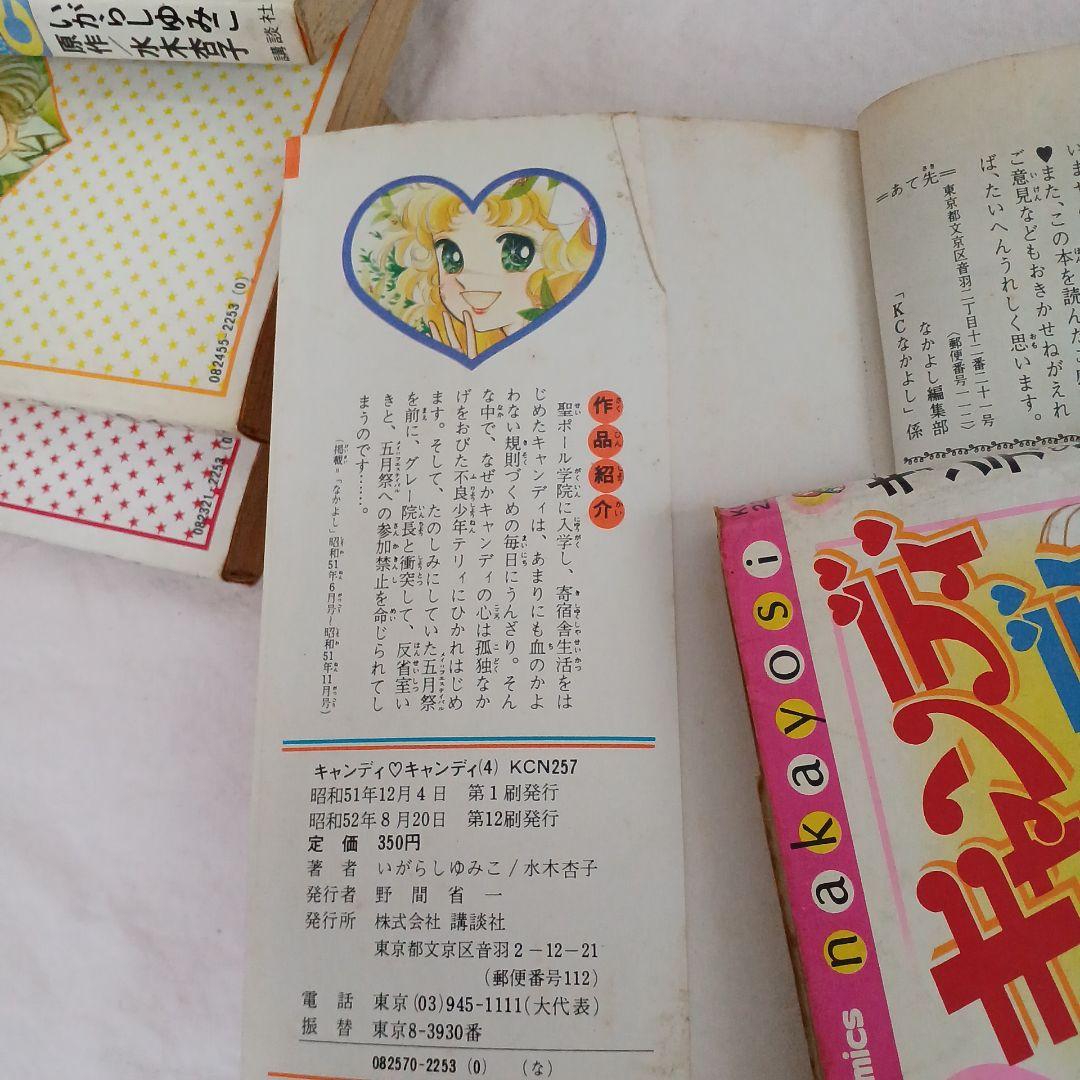 いがらしゆみこ
原作/水木杏子
講談社
082455-2253 (0)
082321-2253
作品紹介
聖ポール学院に入学し、寄宿舎生活をは
じめたキャンディは、あまりにも血のかよ
わない規則づくめの毎日にうんざり。そん
な中で、なぜかキャンディの心は孤独なか
げをおびた不良少年テリィにひかれはじめ
ます。そして、たのしみにしていた五月祭
を前に、グレー院長と衝突して、反省室い
きと、五月祭への参加禁止を命じられてし
まうのです……。
(掲載=「なかよし」昭和51年6月号~昭和51年11月号)
キャンディ♡キャンディ(4) KCN257
昭和51年12月4日 第1刷発行
昭和52年8月20日 第12刷発行
定価 350円
著者 いがらしゆみこ/水木杏子
発行者 野間省一
発行所 株式会社 講談社
東京都文京区音羽2-12-21
(郵便番号112)
電話 東京(03)945-1111(大代表)
振替 東京8-3930番
082570-2253 (0) (な)
♥また、この本を読んだ
ご意見などもおきかせねがえれ
ば、たいへんうれしく思います。
=あて先=
東京都文京区音羽二丁目十二番二十一号
(郵便番号一一二)
なかよし編集部
「KCなかよし」係
nakayosi
キャンディ